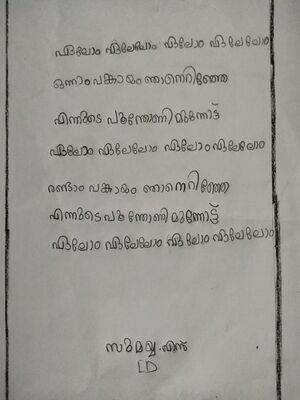 ഏലോം ഏലേലോം ഏലോം ഏലേലോം
ഒന്നാം പങ്കായം ഞാനെറിഞ്ഞേ
എന്നുടെ പൂന്തോണി മുന്നോട്ട്
ഏലോം ഏലേലോം ഏലോം ഏലേലോം
രണ്ടാം പങ്കായം ഞാനെറിഞ്ഞേ
എന്നുടെ പൂന്തോണി മുന്നോട്ട്
ഏലോം ഏലേലോം ഏലോം ഏലേലോം
സുമയ്യ. എൻ
1D